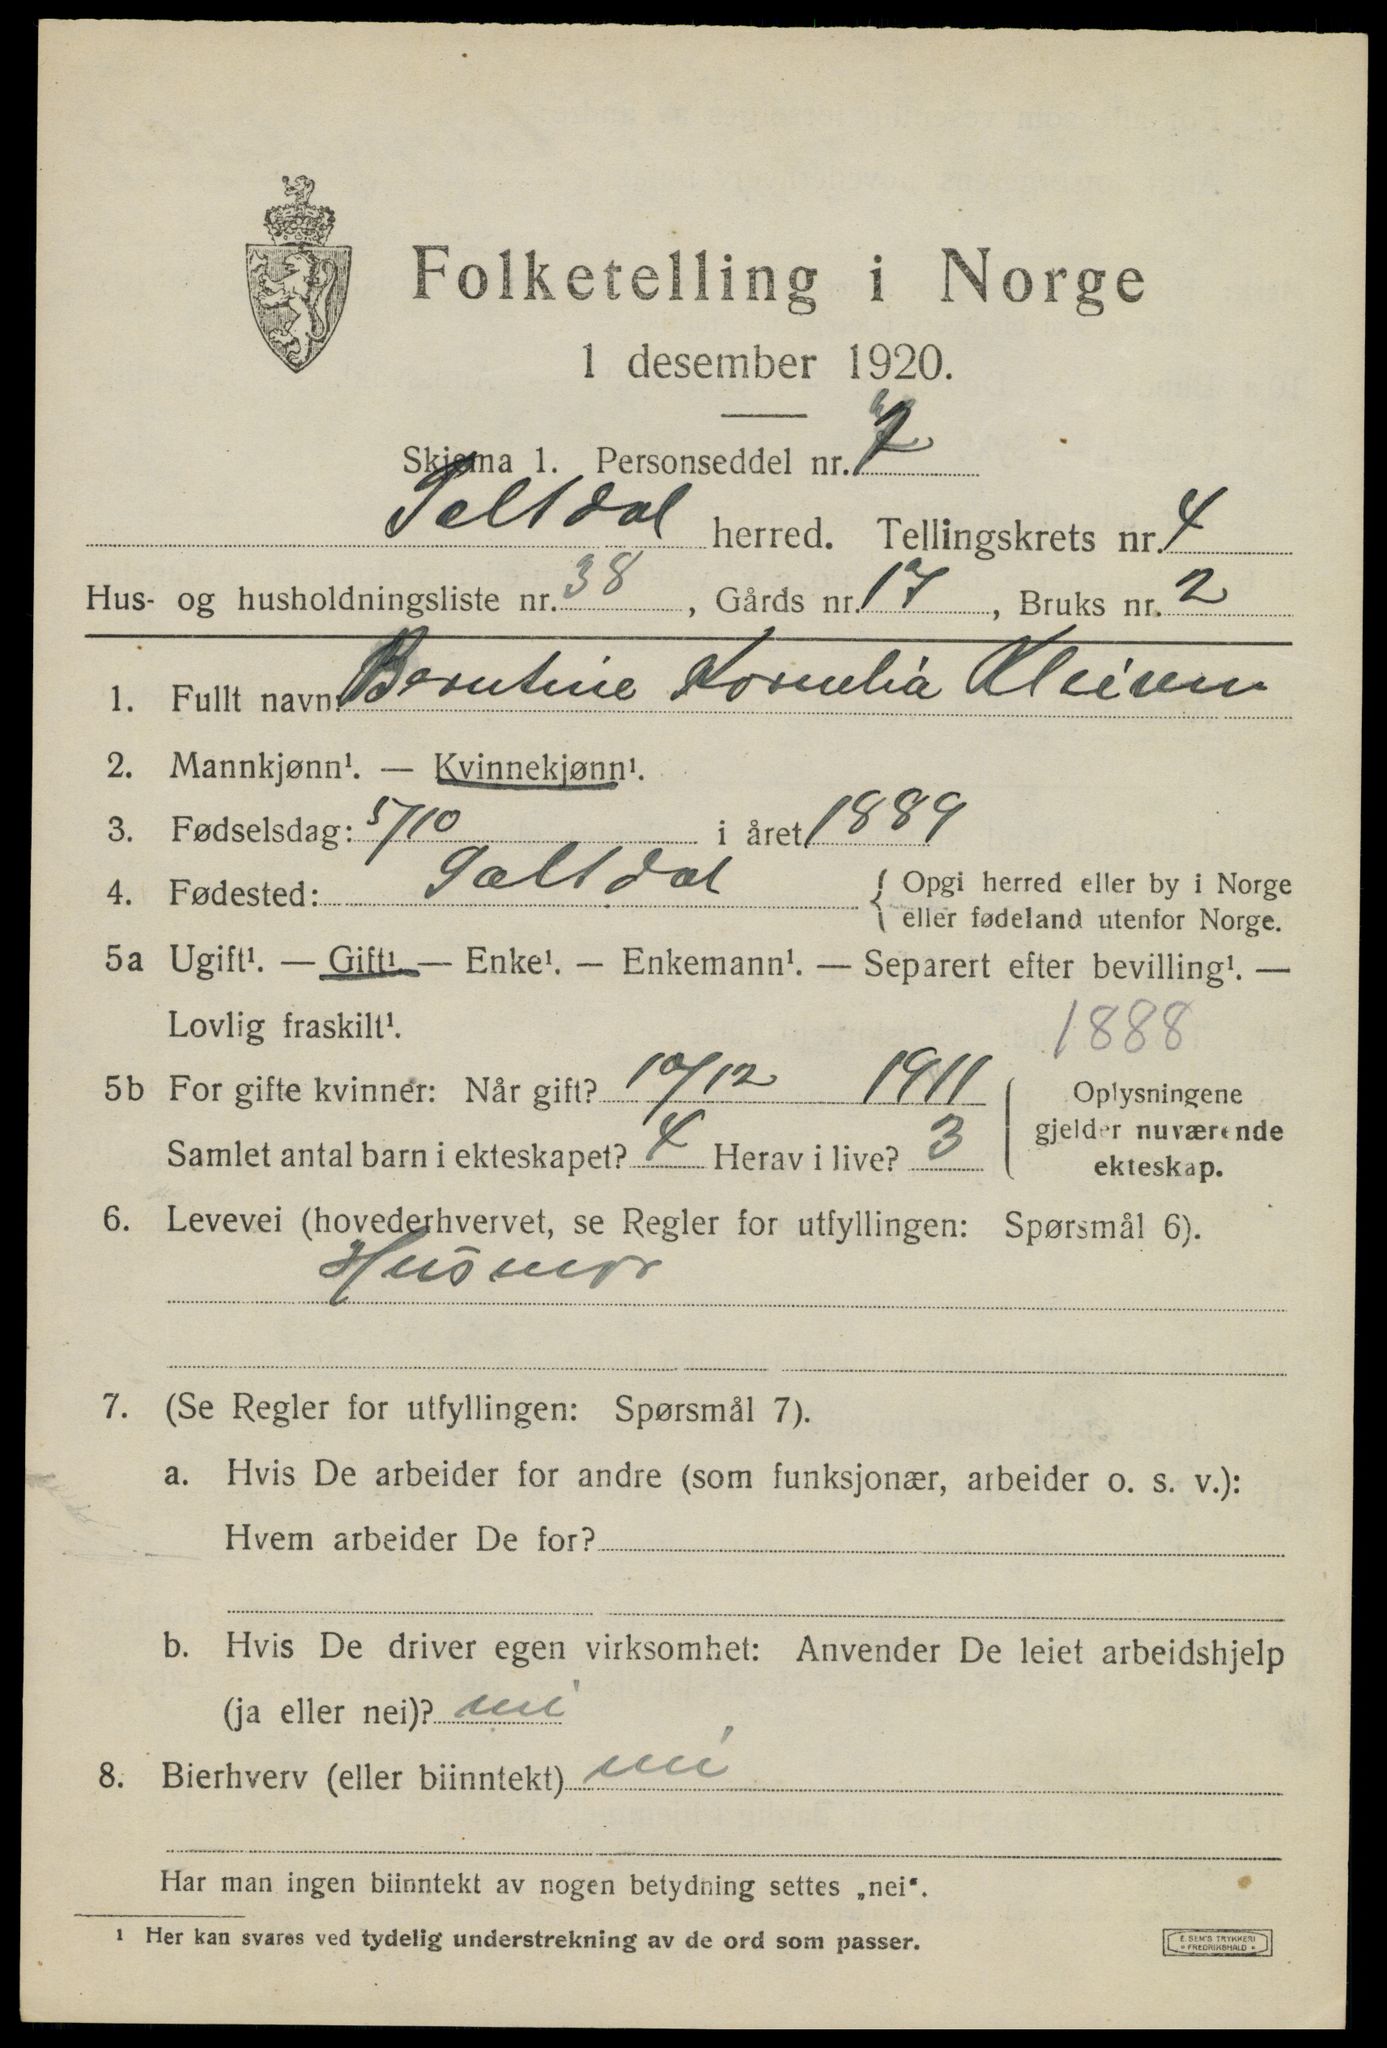 Folketelling i Norge
1 desember 1920.
Skjema 1. Personseddel nr. 2
Saltdal herred. Tellingskrets nr. 4
Hus- og husholdningsliste nr. 38, Gårds nr. 17, Bruks nr. 2
1. Fullt navn: Berntine Kornelia Kleiven
2. Mannkjønn¹. — Kvinnekjønn¹.
3. Fødselsdag: 5/10 i året 1889
4. Fødested: Saltdal { Opgi herred eller by i Norge
eller fødeland utenfor Norge.
5a Ugift¹. — Gift¹ — Enke¹. — Enkemann¹. — Separert efter bevilling¹. —
Lovlig fraskilt¹. 1888
5b For gifte kvinner: Når gift? 10/12 1911 Oplysningene
gjelder nuværende
Samlet antal barn i ekteskapet? 4 Herav i live? 3 ekteskap.
6. Levevei (hovederhvervet, se Regler for utfyllingen: Spørsmål 6).
Husmor
7. (Se Regler for utfyllingen: Spørsmål 7).
a. Hvis De arbeider for andre (som funksjonær, arbeider o. s. v.):
Hvem arbeider De for?
b. Hvis De driver egen virksomhet: Anvender De leiet arbeidshjelp
(ja eller nei)? nei
8. Bierhverv (eller biinntekt) nei
Har man ingen biinntekt av nogen betydning settes „nei“.
¹ Her kan svares ved tydelig understrekning av de ord som passer.
E. SEM'S TRYKKERI
FREDRIKSHALD